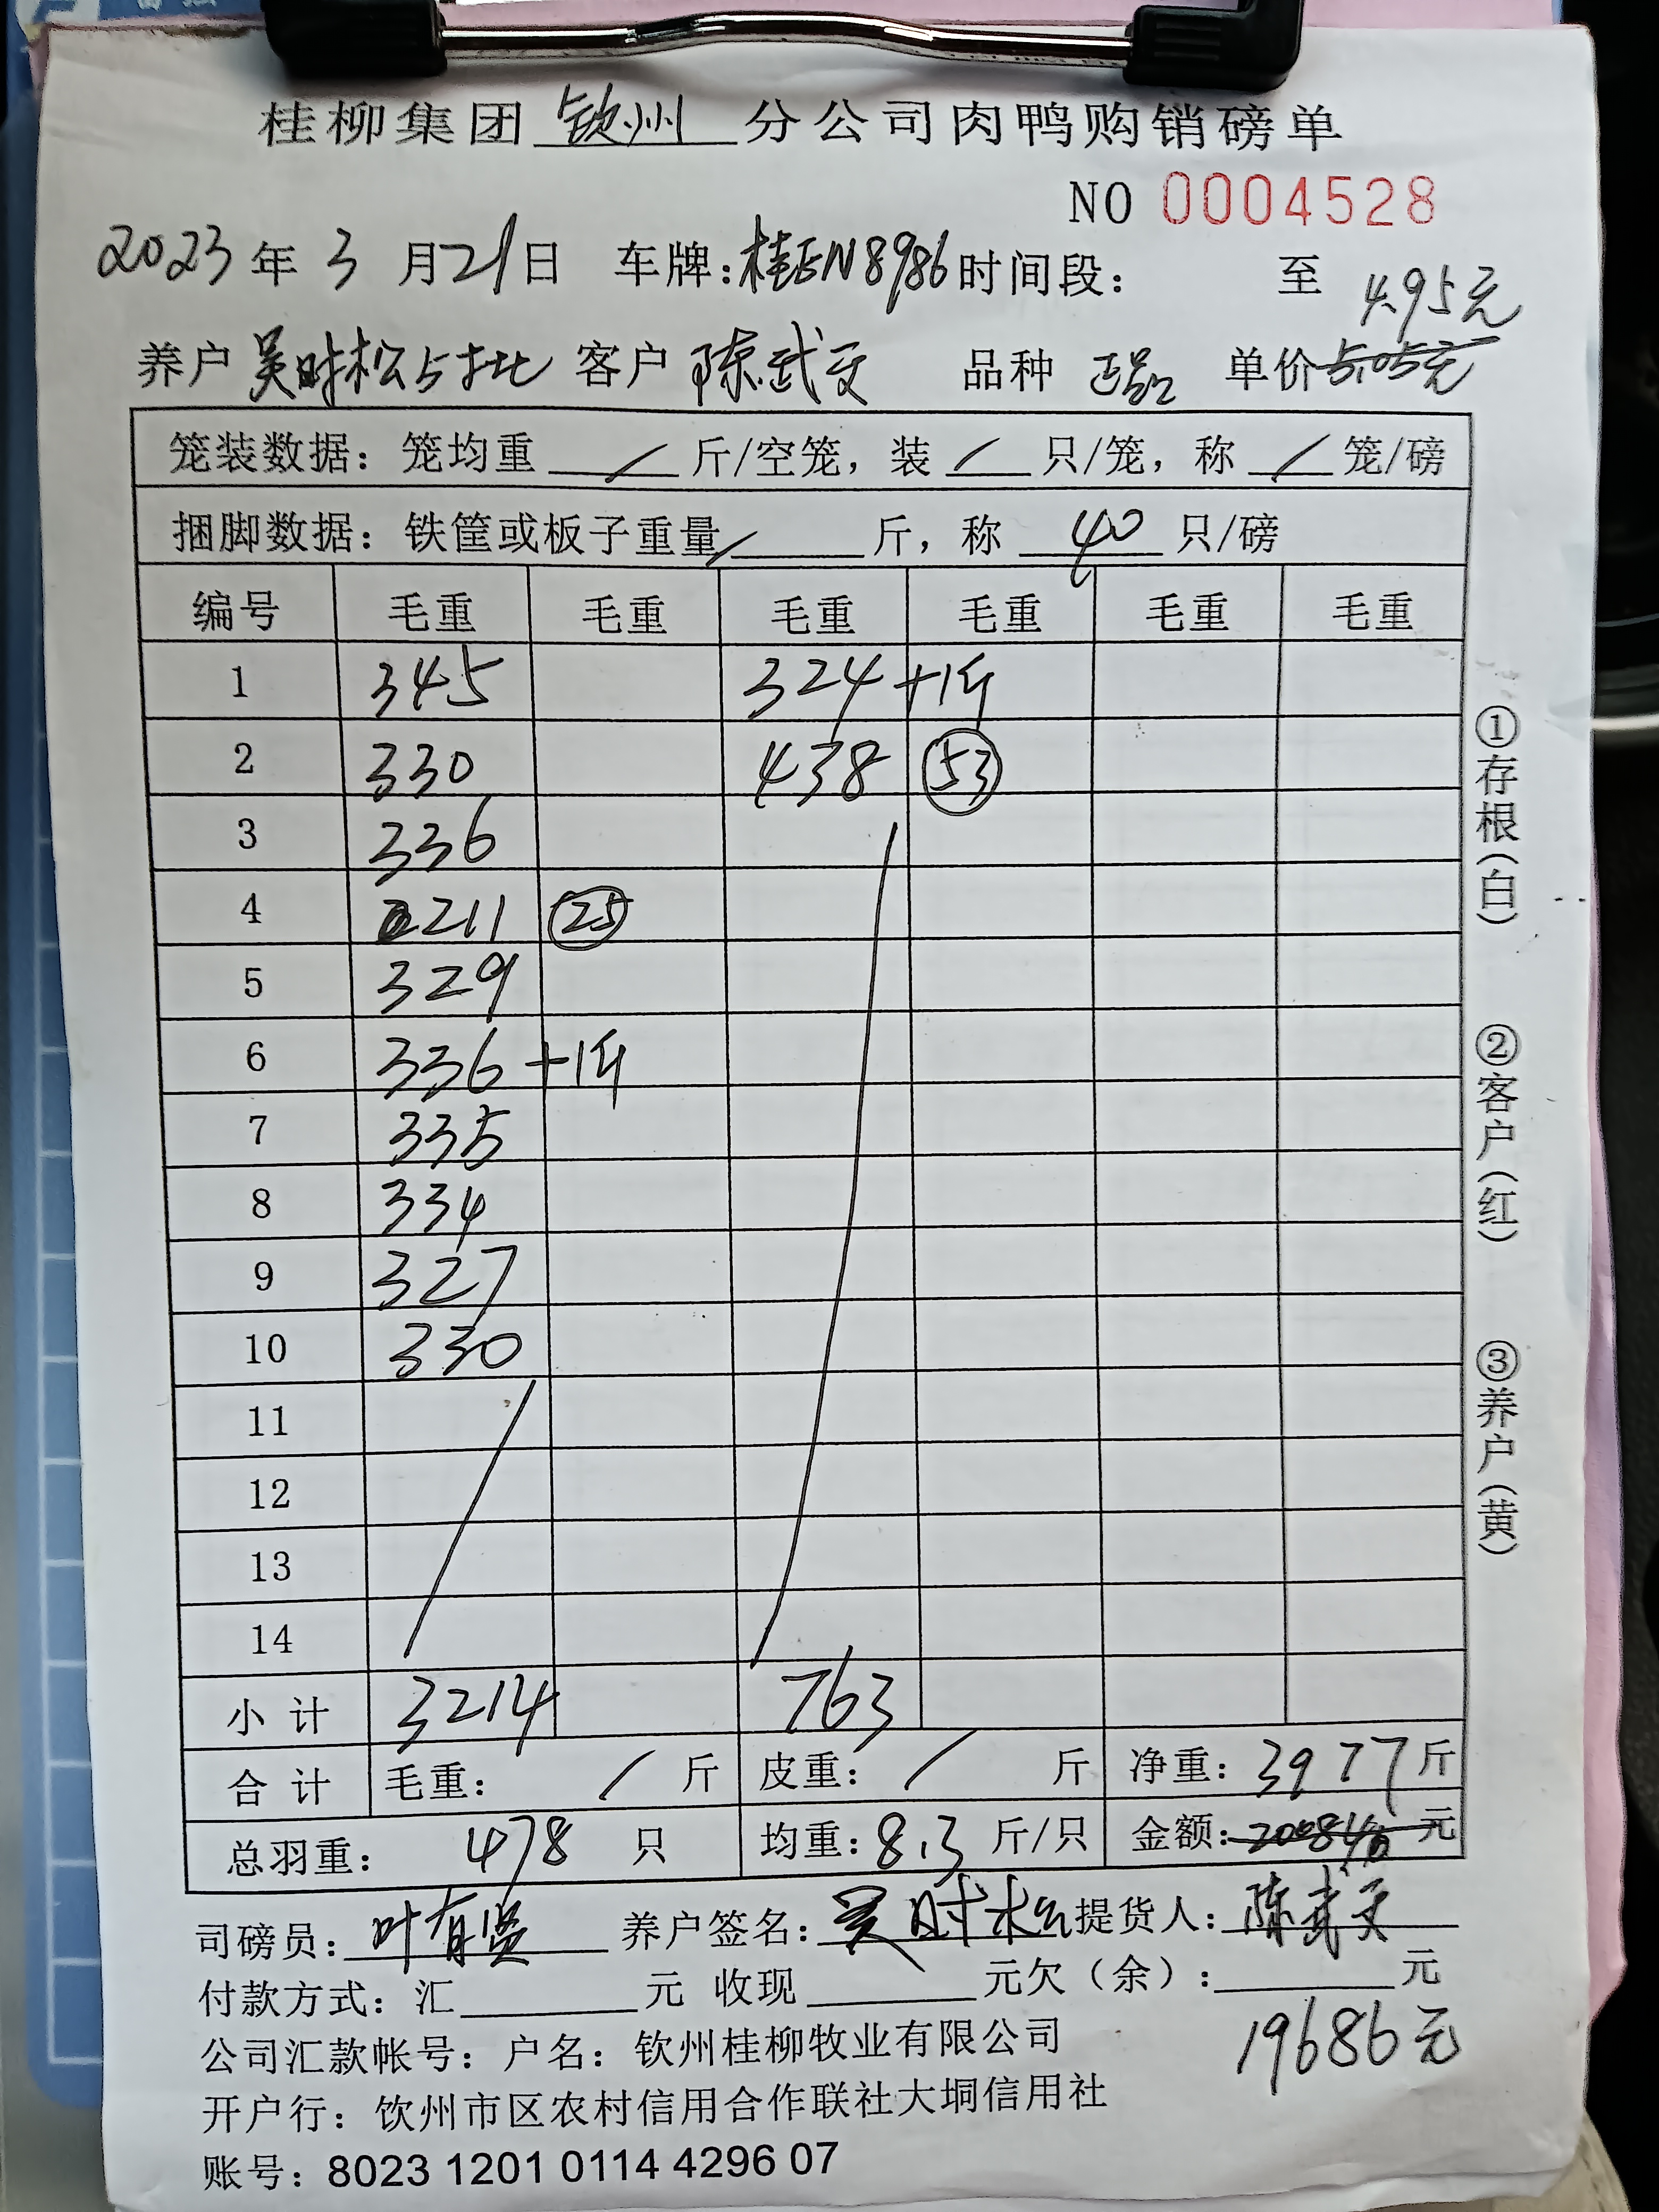 桂柳集团 钦州 分公司肉鸭购销磅单
NO 0004528
2023年3月21日 车牌:桂EN8986时间段: 至
4.95元
养户 吴时松 客户 陈武文 品种 正品 单价 5.05元
笼装数据:笼均重 / 斤/空笼,装 / 只/笼,称 / 笼/磅
捆脚数据:铁筐或板子重量 / 斤,称 40 只/磅
编号 毛重 毛重 毛重 毛重 毛重 毛重
1 345 324 +1斤
2 330 438 53
3 336
4 211 25
5 329
6 336 +1斤
7 335
8 334
9 327
10 330
11
12
13
14
小计 3214 763
合计 毛重: / 斤 皮重: / 斤 净重:3977斤
总羽重: 478 只 均重:8.3 斤/只 金额: 元
司磅员:叶有贤 养户签名:吴时松 提货人:陈武文
付款方式:汇 元 收现 元欠(余): 元
19686元
公司汇款帐号:户名:钦州桂柳牧业有限公司
开户行:钦州市区农村信用合作联社大垌信用社
账号:8023 1201 0114 4296 07
①存根(白)
②客户(红)
③养户(黄)